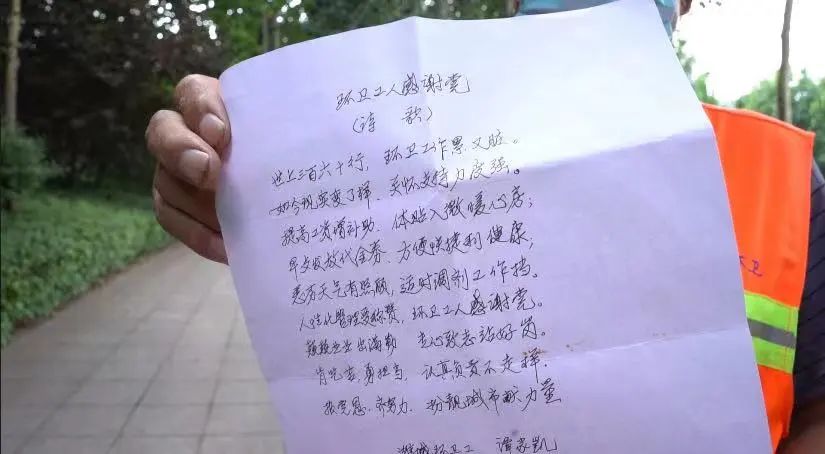 环卫工人感谢党
(诗 歌)
世上三百六十行，环卫工作累又脏。
如今现实变了样，关怀支持力度强。
提高工资增补助、体贴入微暖心房；
早歺发放代金券、方便快捷利健康；
恶劣天气有照顾，适时调剂工作挡。
人性化管理受称赞，环卫工人感谢党。
出满勤 站好岗。
肯吃苦，勇担当，认真负责不走样.
报党恩、齐努力，扮靓城市献力量
潍城环卫工 谭家凯
卫